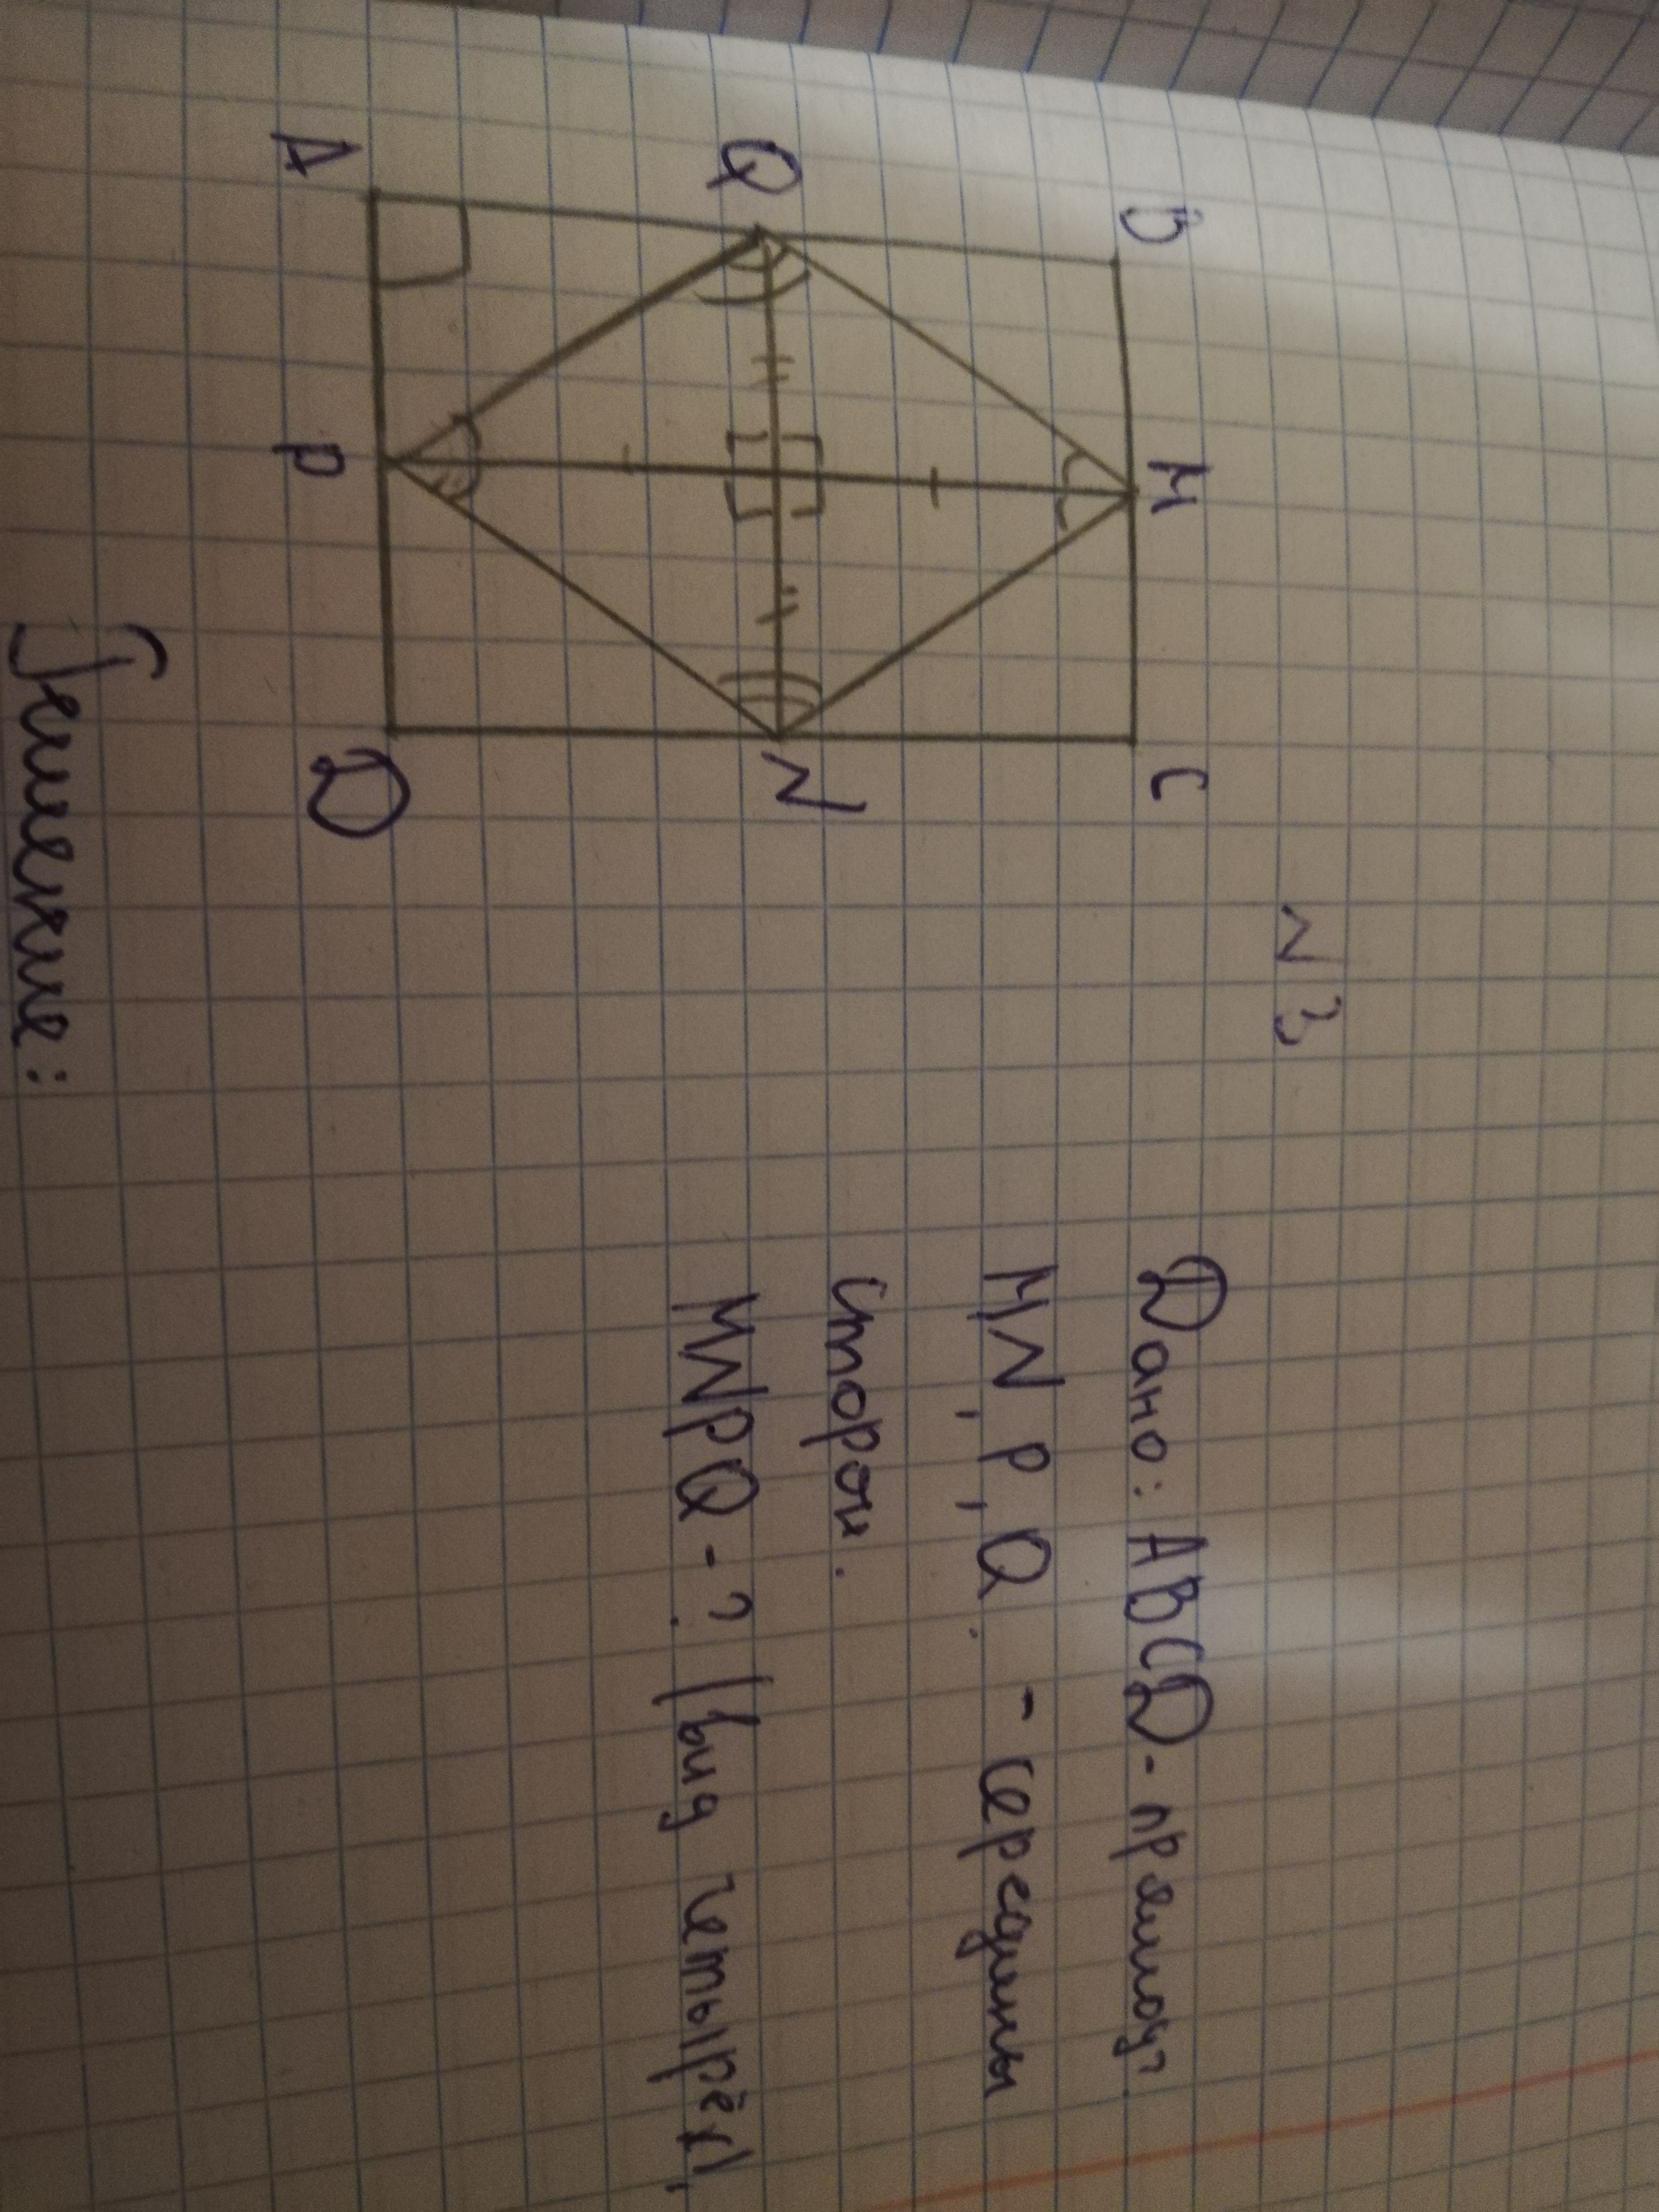 N 3
B M C
Q N
A P D
Дано: ABCD - прямоуг.
MN, P, Q. - середины
сторон.
MNPQ - ? (вид четырёх),
Решение: